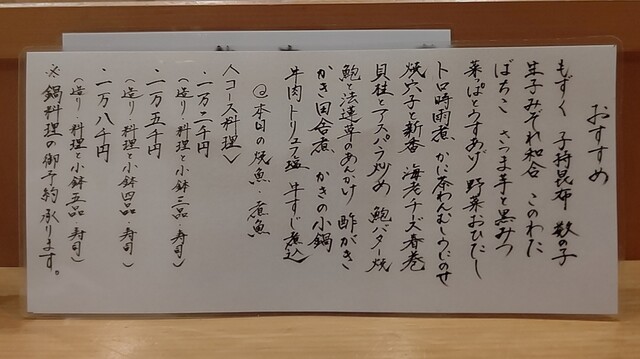 おすすめ
もずく 子持昆布 数の子
生子みぞれ和合 このわた
ばちこ さつま芋と黒みつ
菜っぱとうすあげ 野菜おひたし
トロ時雨煮 かに茶わんむしうにのせ
焼穴子と新香 海老チーズ春巻
貝柱とアスパラ炒め 鮑バター焼
鮑と法蓮草のあんかけ 酢がき
かき田舎煮 かきの小鍋
牛肉トリュフ塩 牛すじ煮込
◎本日の焼魚・煮魚
〈コース料理〉
・一万二千円
(造り・料理と小鉢三品・寿司)
・一万五千円
(造り・料理と小鉢四品・寿司)
・一万八千円
(造り・料理と小鉢五品・寿司)
※鍋料理の御予約承ります。